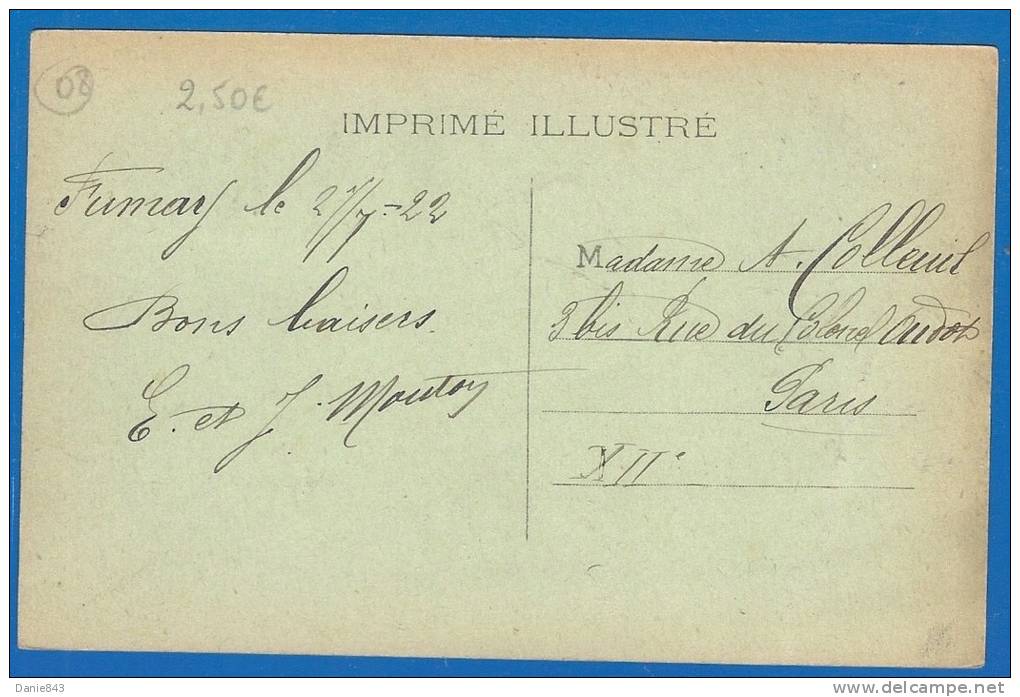 08
2,50€
IMPRIMÉ ILLUSTRÉ
Fumay le 2/7-22
Bons baisers.
E. et J. Moutoy
Madame A. Colleuil
3 bis Rue du Colonel Oudot
Paris
XIIe
Danie843
www.delcampe.net